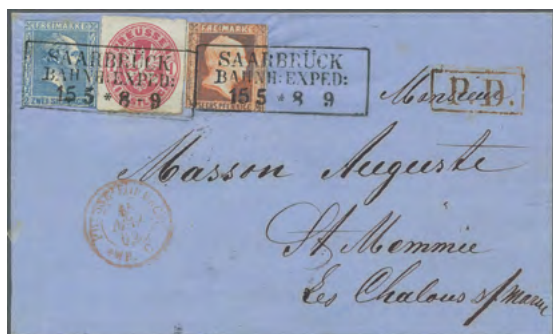 FREIMARKE
PREUSSEN
FREIMARKE
SAARBRÜCK
BAHNH: EXPED:
15 5 * 8 9
SAARBRÜCK
BAHNH: EXPED:
15 5 * 8 9
P.D.
Monsieur
Masson Auguste
St Memmie
Les Chalons s/ Marne